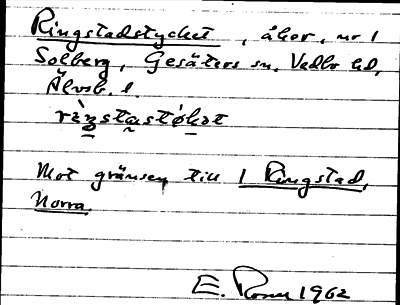 Ringstadstycket, åker, nr 1
Solberg, Gesäters sn, Vedbo hd,
Älvsb. l.
rìŋstastǿkət
Mot gränsen till 1 Ringstad,
Norra.
E. 1962